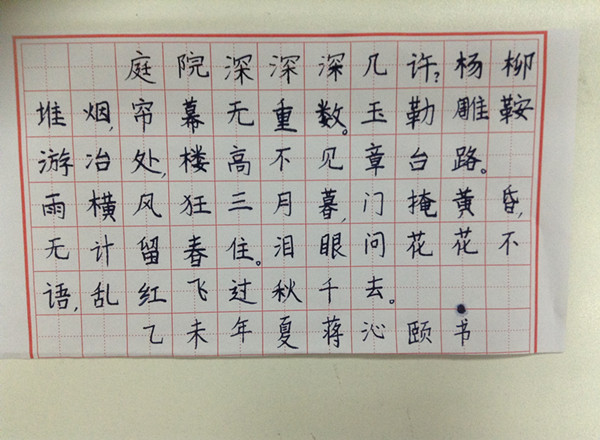 庭院深深深几许?杨柳
堆烟,帘幕无重数。玉勒雕鞍
游冶处,楼高不见章台路。
雨横风狂三月暮,门掩黄昏,
无计留春住。泪眼问花花不
语,乱红飞过秋千去。
乙未年夏蒋沁颐书